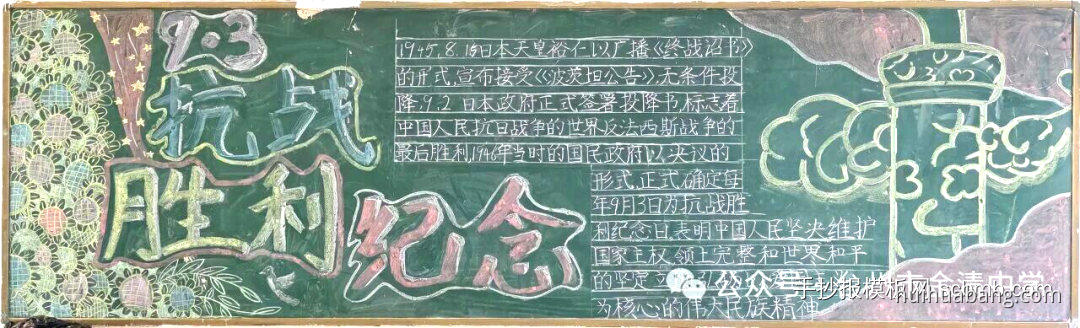 9·3
抗战
胜利
纪念
1945.8.15日本天皇裕仁以广播《终战诏书》
的形式,宣布接受《波茨坦公告》,无条件投
降,9.2日本政府正式签署投降书,标志着
中国人民抗日战争的世界反法西斯战争的
最后胜利,1946年当时的国民政府以决议的
形式,正式确定每
年9月3日为抗战胜
利纪念日,表明中国人民坚决维护
国家主权,领土完整和世界和平
的坚定
为核心的伟大民族精神
公众号
手抄报模板网
市合清中学
huihuabang.com